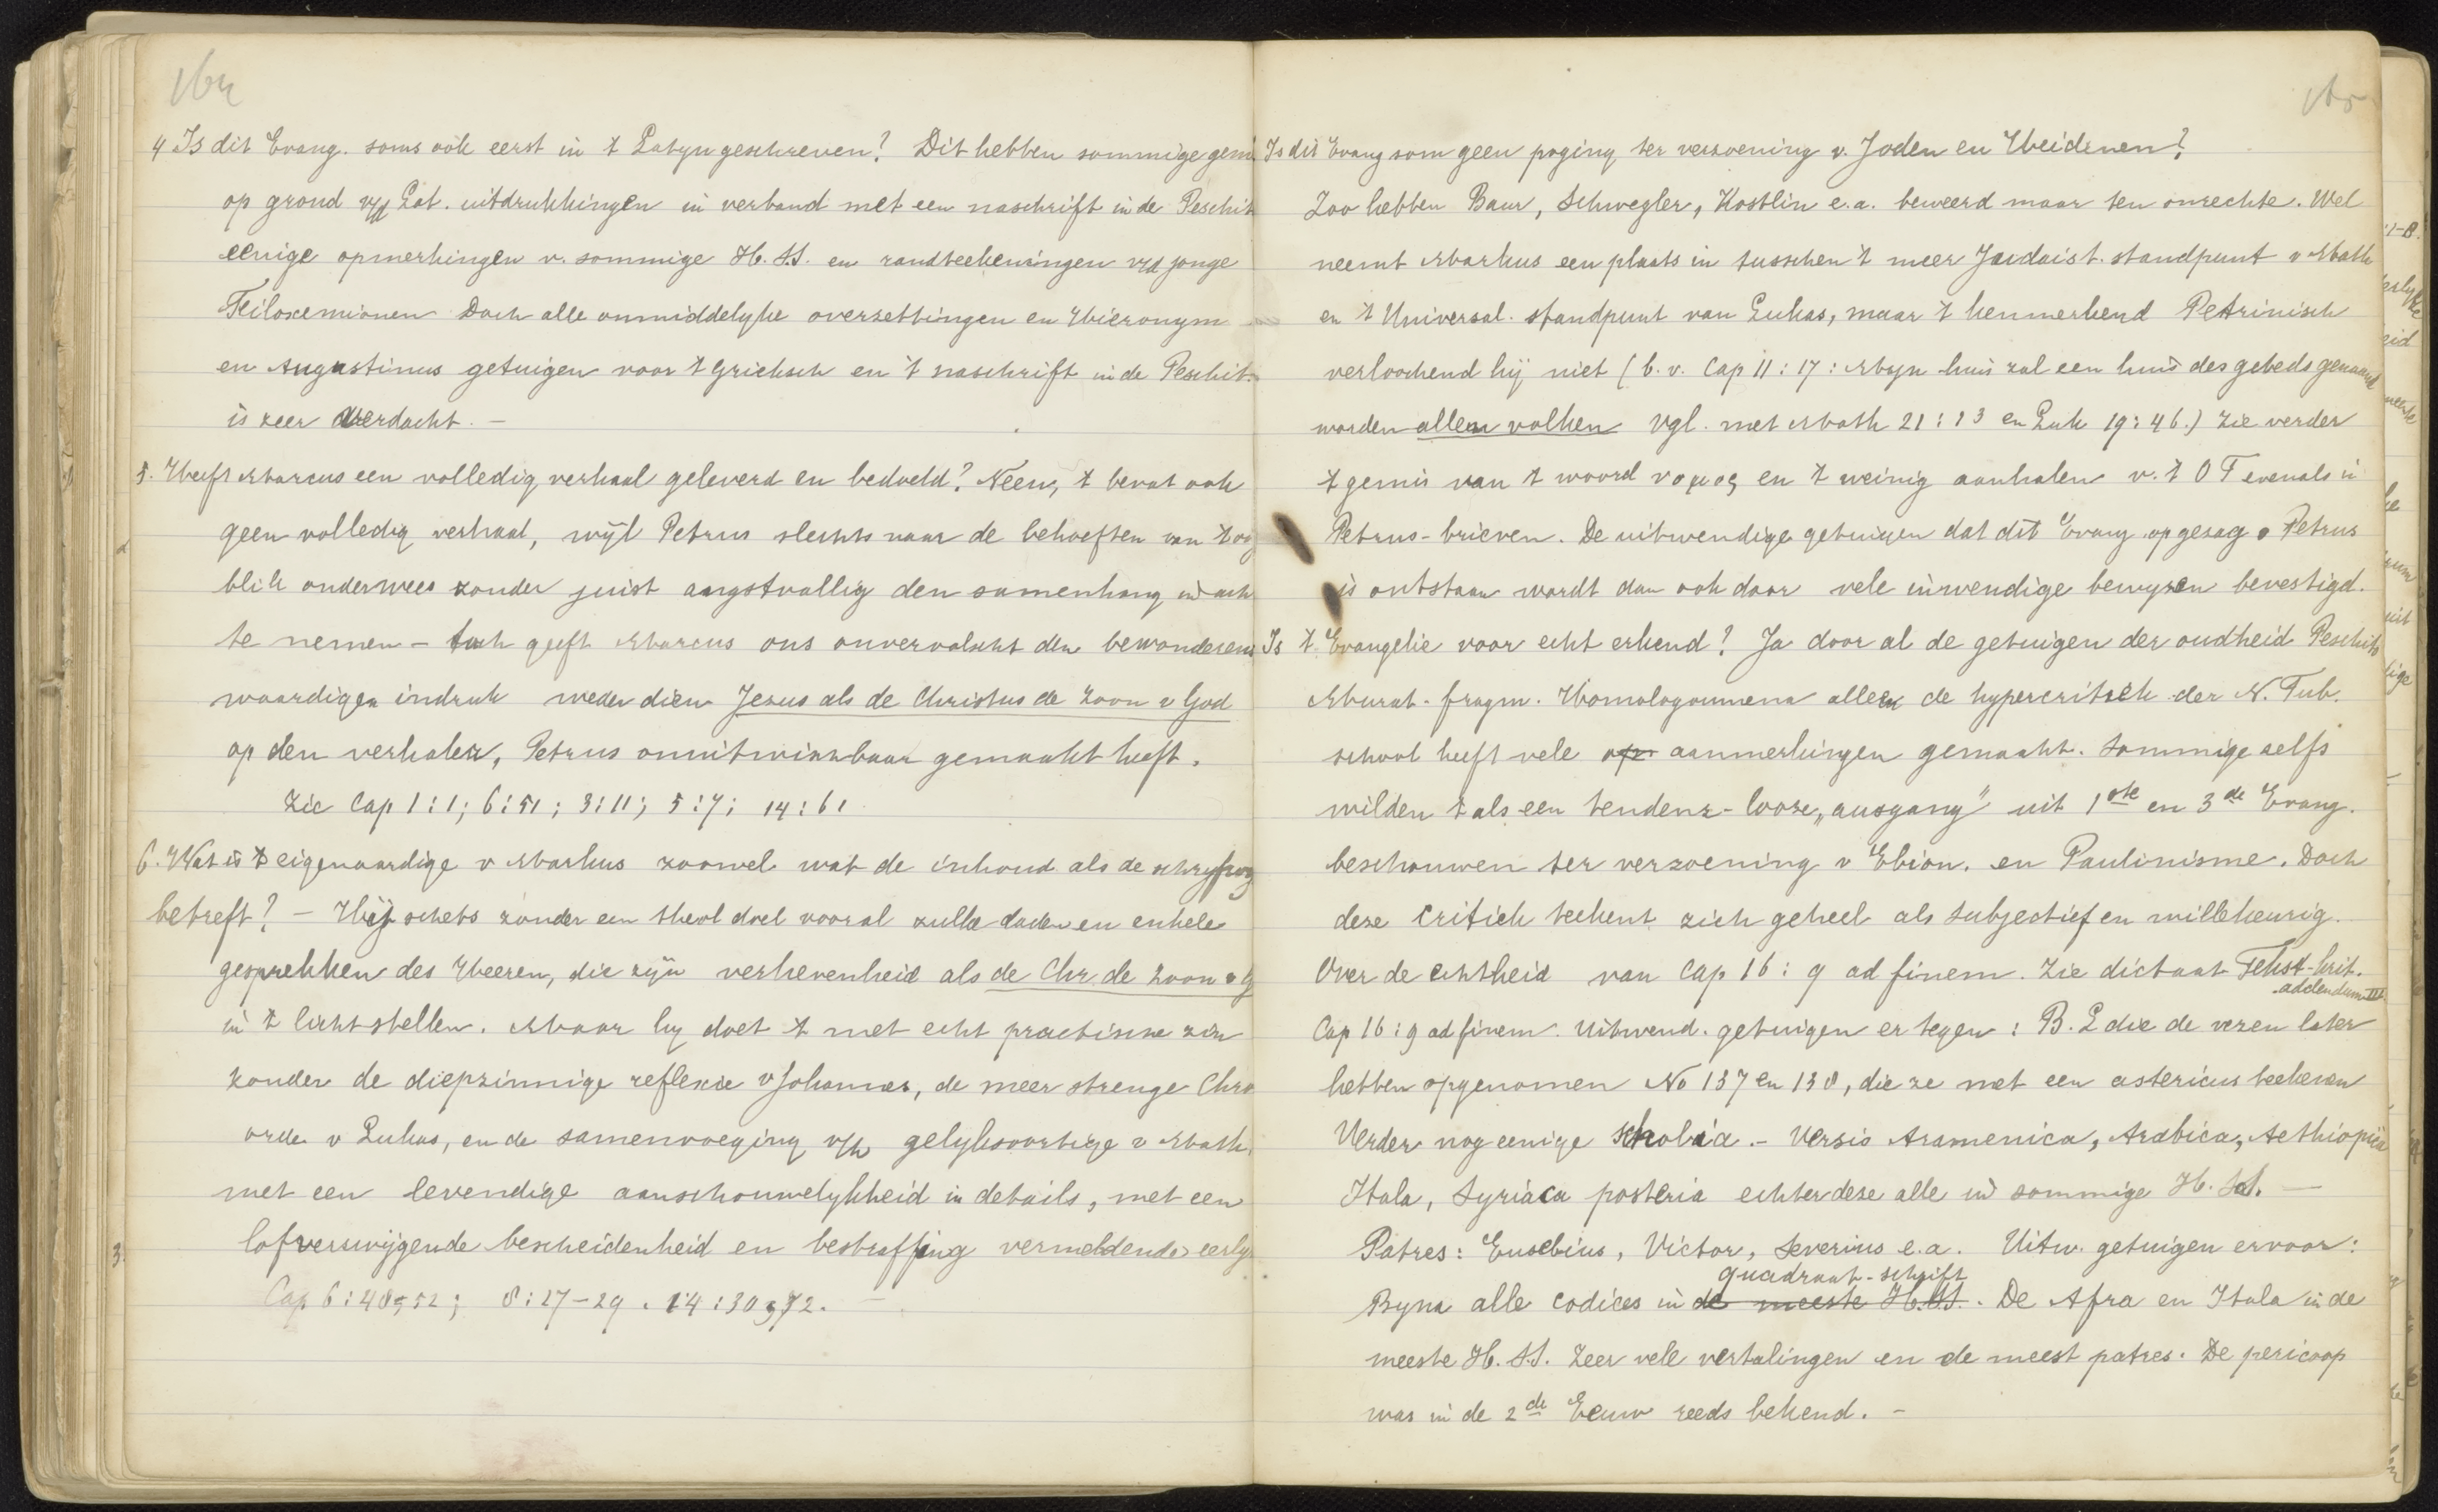 164
4 Is dit Evang. soms ook eerst in 't Latyn geschreven? Dit hebben sommige gem
op grond v/d Lat. uitdrukkingen in verband met een naschrift in de Peschit
eenige opmerkingen v. sommige H.S.S. en randteekeningen v/d jonge
Filoxenianen Doch alle onmiddelyke overzettingen en Hieronym
en Augustinus getuigen voor 't Grieksch en 't naschrift in de Peschit.
is zeer verdacht. —
5. Heeft Marcus een volledig verhaal geleverd en bedoeld? Neen, 't bevat ook
geen volledig verhaal, wijl Petrus slechts naar de behoeften van 't oog
blik onderwees zonder juist angstvallig den samenhang in ach
te nemen – toch geeft Marcus ons onvervalscht den bewonderens
waardigen indruk weder dien Jezus als de Christus de Zoon v God
op den verhaler, Petrus onuitwischbaar gemaakt heeft.
Zie Cap 1:1; 6:51; 3:11; 5:7; 14:61
6. Wat is 't eigenaardige v Markus zoowel wat de inhoud als de schryfwyz
betreft? – Hij schets zonder een theol doel vooral zulke daden en enkele
gesprekken des Heeren, die zijn verhevenheid als de Chr. de Zoon v G
in 't licht stellen. Maar hy doet 't met echt practische zin
zonder de diepzinnige reflexie v Johannes, de meer strenge Chro
orde v Lukas, en de samenvoeging v/h gelyksoortige v Math.
met een levendige aanschouwelykheid in details, met een
lofverzwijgende bescheidenheid en bestraffing vermeldende eerly
Cap 6:48, 52; 8:27–29. 14:30, 72. —
165
Is dit Evang som geen poging ter verzoening v. Joden en Heidenen?
Zoo hebben Baur, Schwegler, Kostlin e.a. beweerd maar ten onrechte. Wel
neemt Markus een plaats in tusschen 't meer Judaist. standpunt v Math
en 't Universal. standpunt van Lukas, maar 't kenmerkend Petrinisch
verloochend hij niet (b.v. Cap 11:17: Myn huis zal een huis des gebeds genaamd
worden allen volken vgl. met Math 21:13 en Luk 19:46.) Zie verder
't gemis van 't woord νομος en 't weinig aanhalen v. 't O T evenals in
Petrus-brieven. De uitwendige getuigen dat dit Evang op gezag v Petrus
is ontstaan wordt dan ook door vele inwendige bewyzen bevestigd.
Is 't Evangelie voor echt erkend? Ja door al de getuigen der oudheid Peschito
Murat. fragm. Homologoumena alleen de hypercritiek der N. Tub.
school heeft vele op aanmerkingen gemaakt. Sommige zelfs
wilden 't als een tendenz-looze „ausgang" uit 1ste en 3de Evang.
beschouwen ter verzoening v Ebion. en Paulinisme. Doch
deze critiek teekent zich geheel als subjectief en willekeurig.
Over de echtheid van Cap 16:9 ad finem. Zie dictaat Tekst-krit.
addendum III.
Cap 16:9 ad finem. Uitwend. getuigen er tegen: B. L die de verzen later
hebben opgenomen No 137 en 138, die ze met een astericus teekenen
Verder nog eenige scholia. – Versio Aramenica, Arabica, Aethiopica
Itala, Syriaca posteria echter deze alle in sommige H. SS. —
Patres: Eusebius, Victor, Severius e.a. Uitw. getuigen ervoor:
quadraat-schrift
Byna alle codices in de meeste H.SS. . De Afra en Itala in de
meeste H. S.S. Zeer vele vertalingen en de meest patres. De pericoop
was in de 2de Eeuw reeds bekend. –